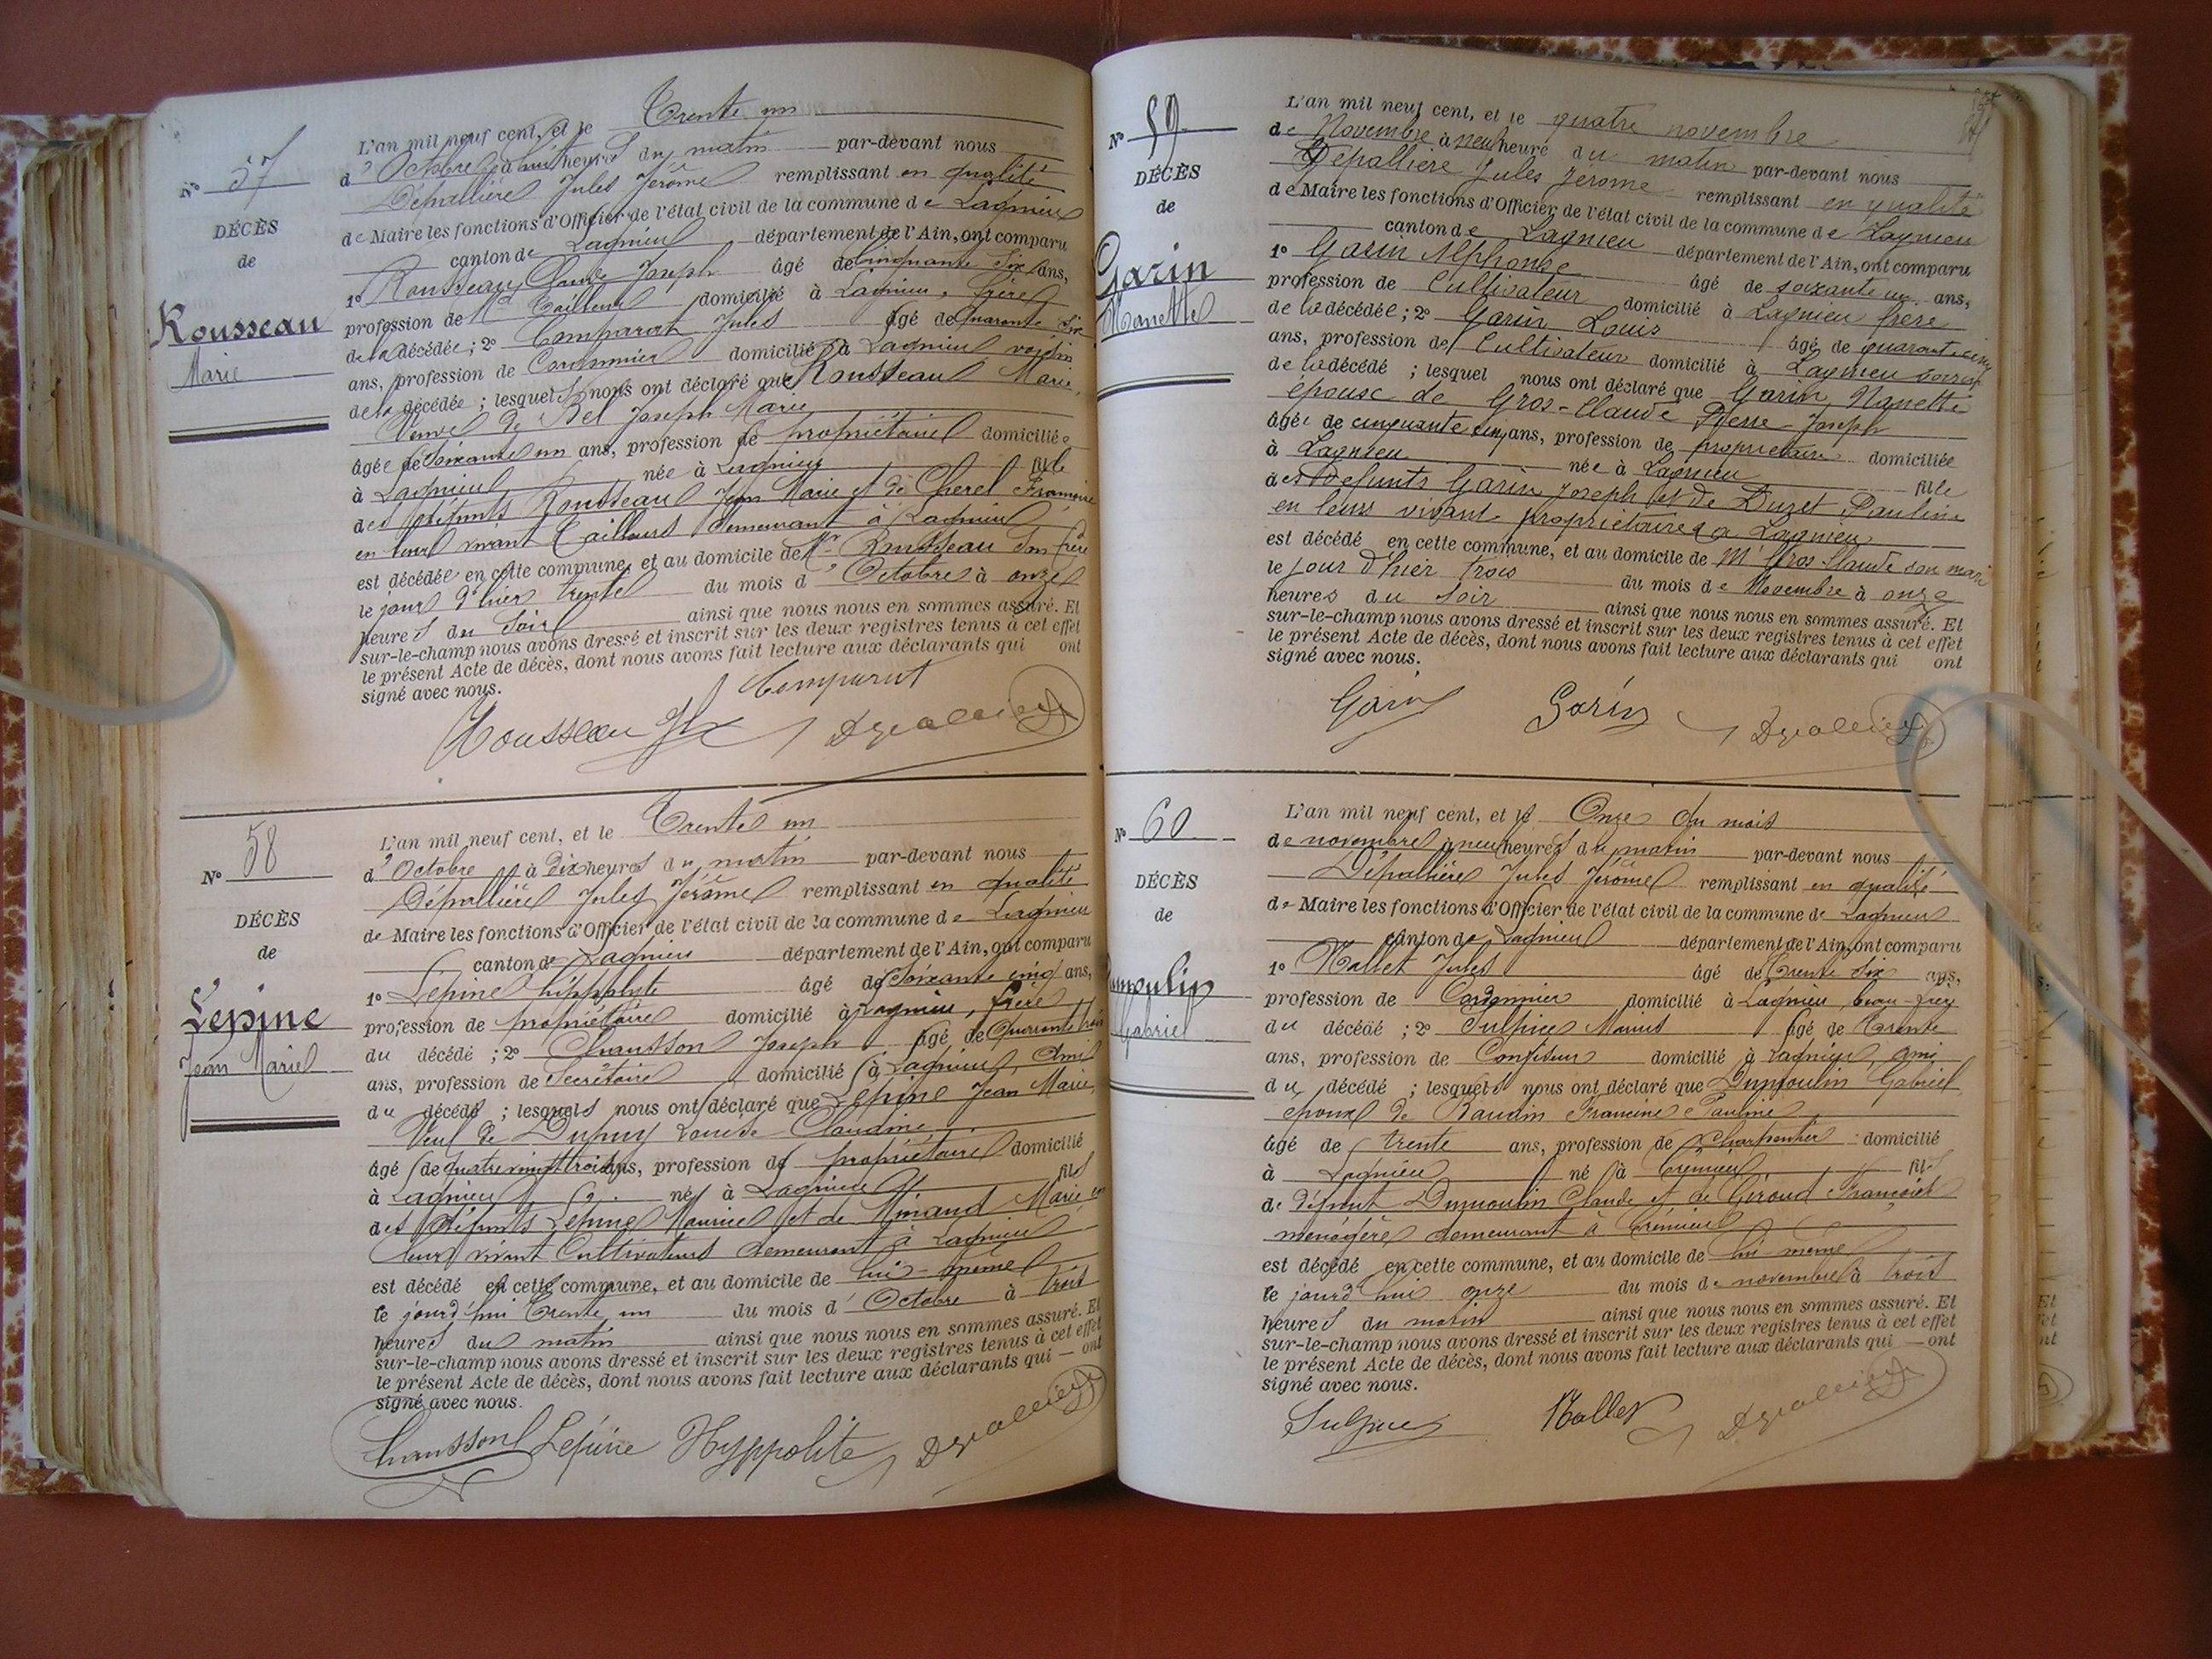 N° 57
DÉCÈS
de
Rousseau
Marie
L'an mil neuf cent, et le Trente un
d'Octobre à huit heures du matin par-devant nous
Dépallière Jules Jérôme remplissant en qualité
de Maire les fonctions d'Officier de l'état civil de la commune de Lagnieu
canton de Lagnieu département de l'Ain, ont comparu
1° Rousseau Claude Joseph âgé de cinquante six ans,
profession de Md Tailleur domicilié à Lagnieu, frère
de la décédée; 2° Comparat Jules âgé de quarante six
ans, profession de Cordonnier domicilié à Lagnieu voisin
de la décédée; lesquels nous ont déclaré que Rousseau Marie,
Veuve de Bel Joseph Marie
âgée de soixante un ans, profession de propriétaire domiciliée
à Lagnieu née à Lagnieu fille
des défunts Rousseau Jean Marie et de Cherel
en leur vivant Tailleurs demeurant à Lagnieu
est décédée en cette commune, et au domicile de Mr Rousseau son frère
le jour d'hier trente du mois d'Octobre à onze
heures du soir ainsi que nous nous en sommes assuré. Et
sur-le-champ nous avons dressé et inscrit sur les deux registres tenus à cet effet
le présent Acte de décès, dont nous avons fait lecture aux déclarants qui ont
signé avec nous.
Comparat
Rousseau
N° 58
DÉCÈS
de
Lépine
Jean Marie
L'an mil neuf cent, et le Trente un
d'Octobre à Dix heures du matin par-devant nous
Dépallière Jules Jérôme remplissant en qualité
de Maire les fonctions d'Officier de l'état civil de la commune de Lagnieu
canton de Lagnieu département de l'Ain, ont comparu
1° Lépine hippolyte âgé de soixante cinq ans,
profession de propriétaire domicilié à Lagnieu, frère
du décédé; 2° Chausson Joseph âgé de Quarante trois
ans, profession de Secrétaire domicilié à Lagnieu, Ami
du décédé; lesquels nous ont déclaré que Lépine Jean Marie,
Veuf de Dupuy Louise Claudine
âgé de quatre vingt trois ans, profession de propriétaire domicilié
à Lagnieu né à Lagnieu fils
des défunts Lépine Maurice et de Minand Marie en
leur vivant Cultivateurs demeurant à Lagnieu
est décédé en cette commune, et au domicile de lui-même
le jourd'hui Trente un du mois d'Octobre à trois
heures du matin ainsi que nous nous en sommes assuré. Et
sur-le-champ nous avons dressé et inscrit sur les deux registres tenus à cet effet
le présent Acte de décès, dont nous avons fait lecture aux déclarants qui — ont
signé avec nous.
Chausson Lépine Hyppolite
N° 59
DÉCÈS
de
Garin
Nanette
L'an mil neuf cent, et le quatre novembre
de Novembre à neuf heure du matin par-devant nous
Dépallière Jules Jerome remplissant en qualité
de Maire les fonctions d'Officier de l'état civil de la commune de Lagnieu
canton de Lagnieu département de l'Ain, ont comparu
1° Garin Alphonse âgé de soixante un ans,
profession de Cultivateur domicilié à Lagnieu frère
de la décédée; 2° Garin Louis âgé de quarante cinq
ans, profession de Cultivateur domicilié à Lagnieu cousin
de la décédé; lesquel nous ont déclaré que Garin Nanette
épouse de Gros-Claude Pierre-Joseph
âgée de cinquante cinq ans, profession de propriétaire domiciliée
à Lagnieu née à Lagnieu fille
des Defunts Garin Joseph et de Duzet Pauline
en leurs vivant propriétaires a Lagnieu
est décédé en cette commune, et au domicile de Mr Gros-Claude son mari
le jour d'hier trois du mois de Novembre à onze
heures du soir ainsi que nous nous en sommes assuré. Et
sur-le-champ nous avons dressé et inscrit sur les deux registres tenus à cet effet
le présent Acte de décès, dont nous avons fait lecture aux déclarants qui ont
signé avec nous.
Garin Garin
N° 60
DÉCÈS
de
umoulin
Gabriel
L'an mil neuf cent, et le Onze du mois
de novembre à neuf heures du matin par-devant nous
Dépallière Jules Jérôme remplissant en qualité
de Maire les fonctions d'Officier de l'état civil de la commune de Lagnieu
canton de Lagnieu département de l'Ain, ont comparu
1° Mallet Jules âgé de Trente six ans,
profession de Cordonnier domicilié à Lagnieu, beau-frère
du décédé; 2° Sulpice Marius âgé de Trente
ans, profession de Confiseur domicilié à Lagnieu, ami
du décédé; lesquels nous ont déclaré que Dumoulin Gabriel
époux de Baudin Francine Pauline
âgé de trente ans, profession de Charpentier domicilié
à Lagnieu né à Crémieu fils
de défunt Dumoulin Claude et de Giroud Françoise
ménagère demeurant à Crémieu
est décédé en cette commune, et au domicile de lui-même
le jourd'hui onze du mois de novembre à trois
heures du matin ainsi que nous nous en sommes assuré. Et
sur-le-champ nous avons dressé et inscrit sur les deux registres tenus à cet effet
le présent Acte de décès, dont nous avons fait lecture aux déclarants qui — ont
signé avec nous.
Sulpice Mallet